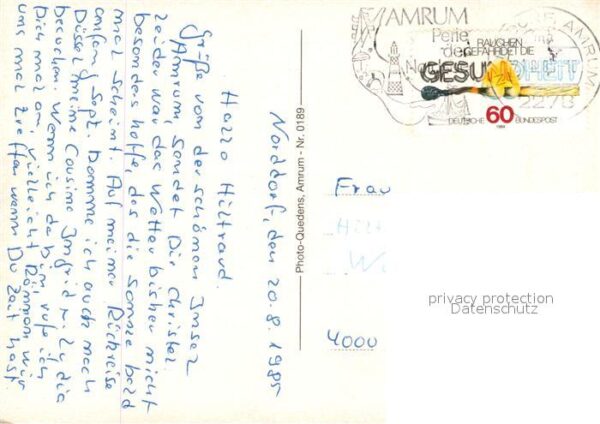 Norddorf, den 20.8.1985
Hallo Hiltraud.
Grüße von der schönen Insel
Amrum sendet Dir Christel.
Leider war das Wetter bisher nicht
besonders hoffe, das die Sonne bald
mal scheint. Auf meiner Rückreise
anfang Sept. komme ich auch nach
Düssel meine Cousine Ingrid u. Lydia
besuchen. Wenn ich da bin, rufe ich
Dich mal an, vielleicht können wir
uns mal treffen wenn Du Zeit hast
Photo-Quedens, Amrum - Nr. 0189
AMRUM
Perle
der
RAUCHEN
GEFÄHRDET DIE
GESUNDHEIT
60
DEUTSCHE BUNDESPOST
AMRUM
2278
Frau
4000
privacy protection
Datenschutz